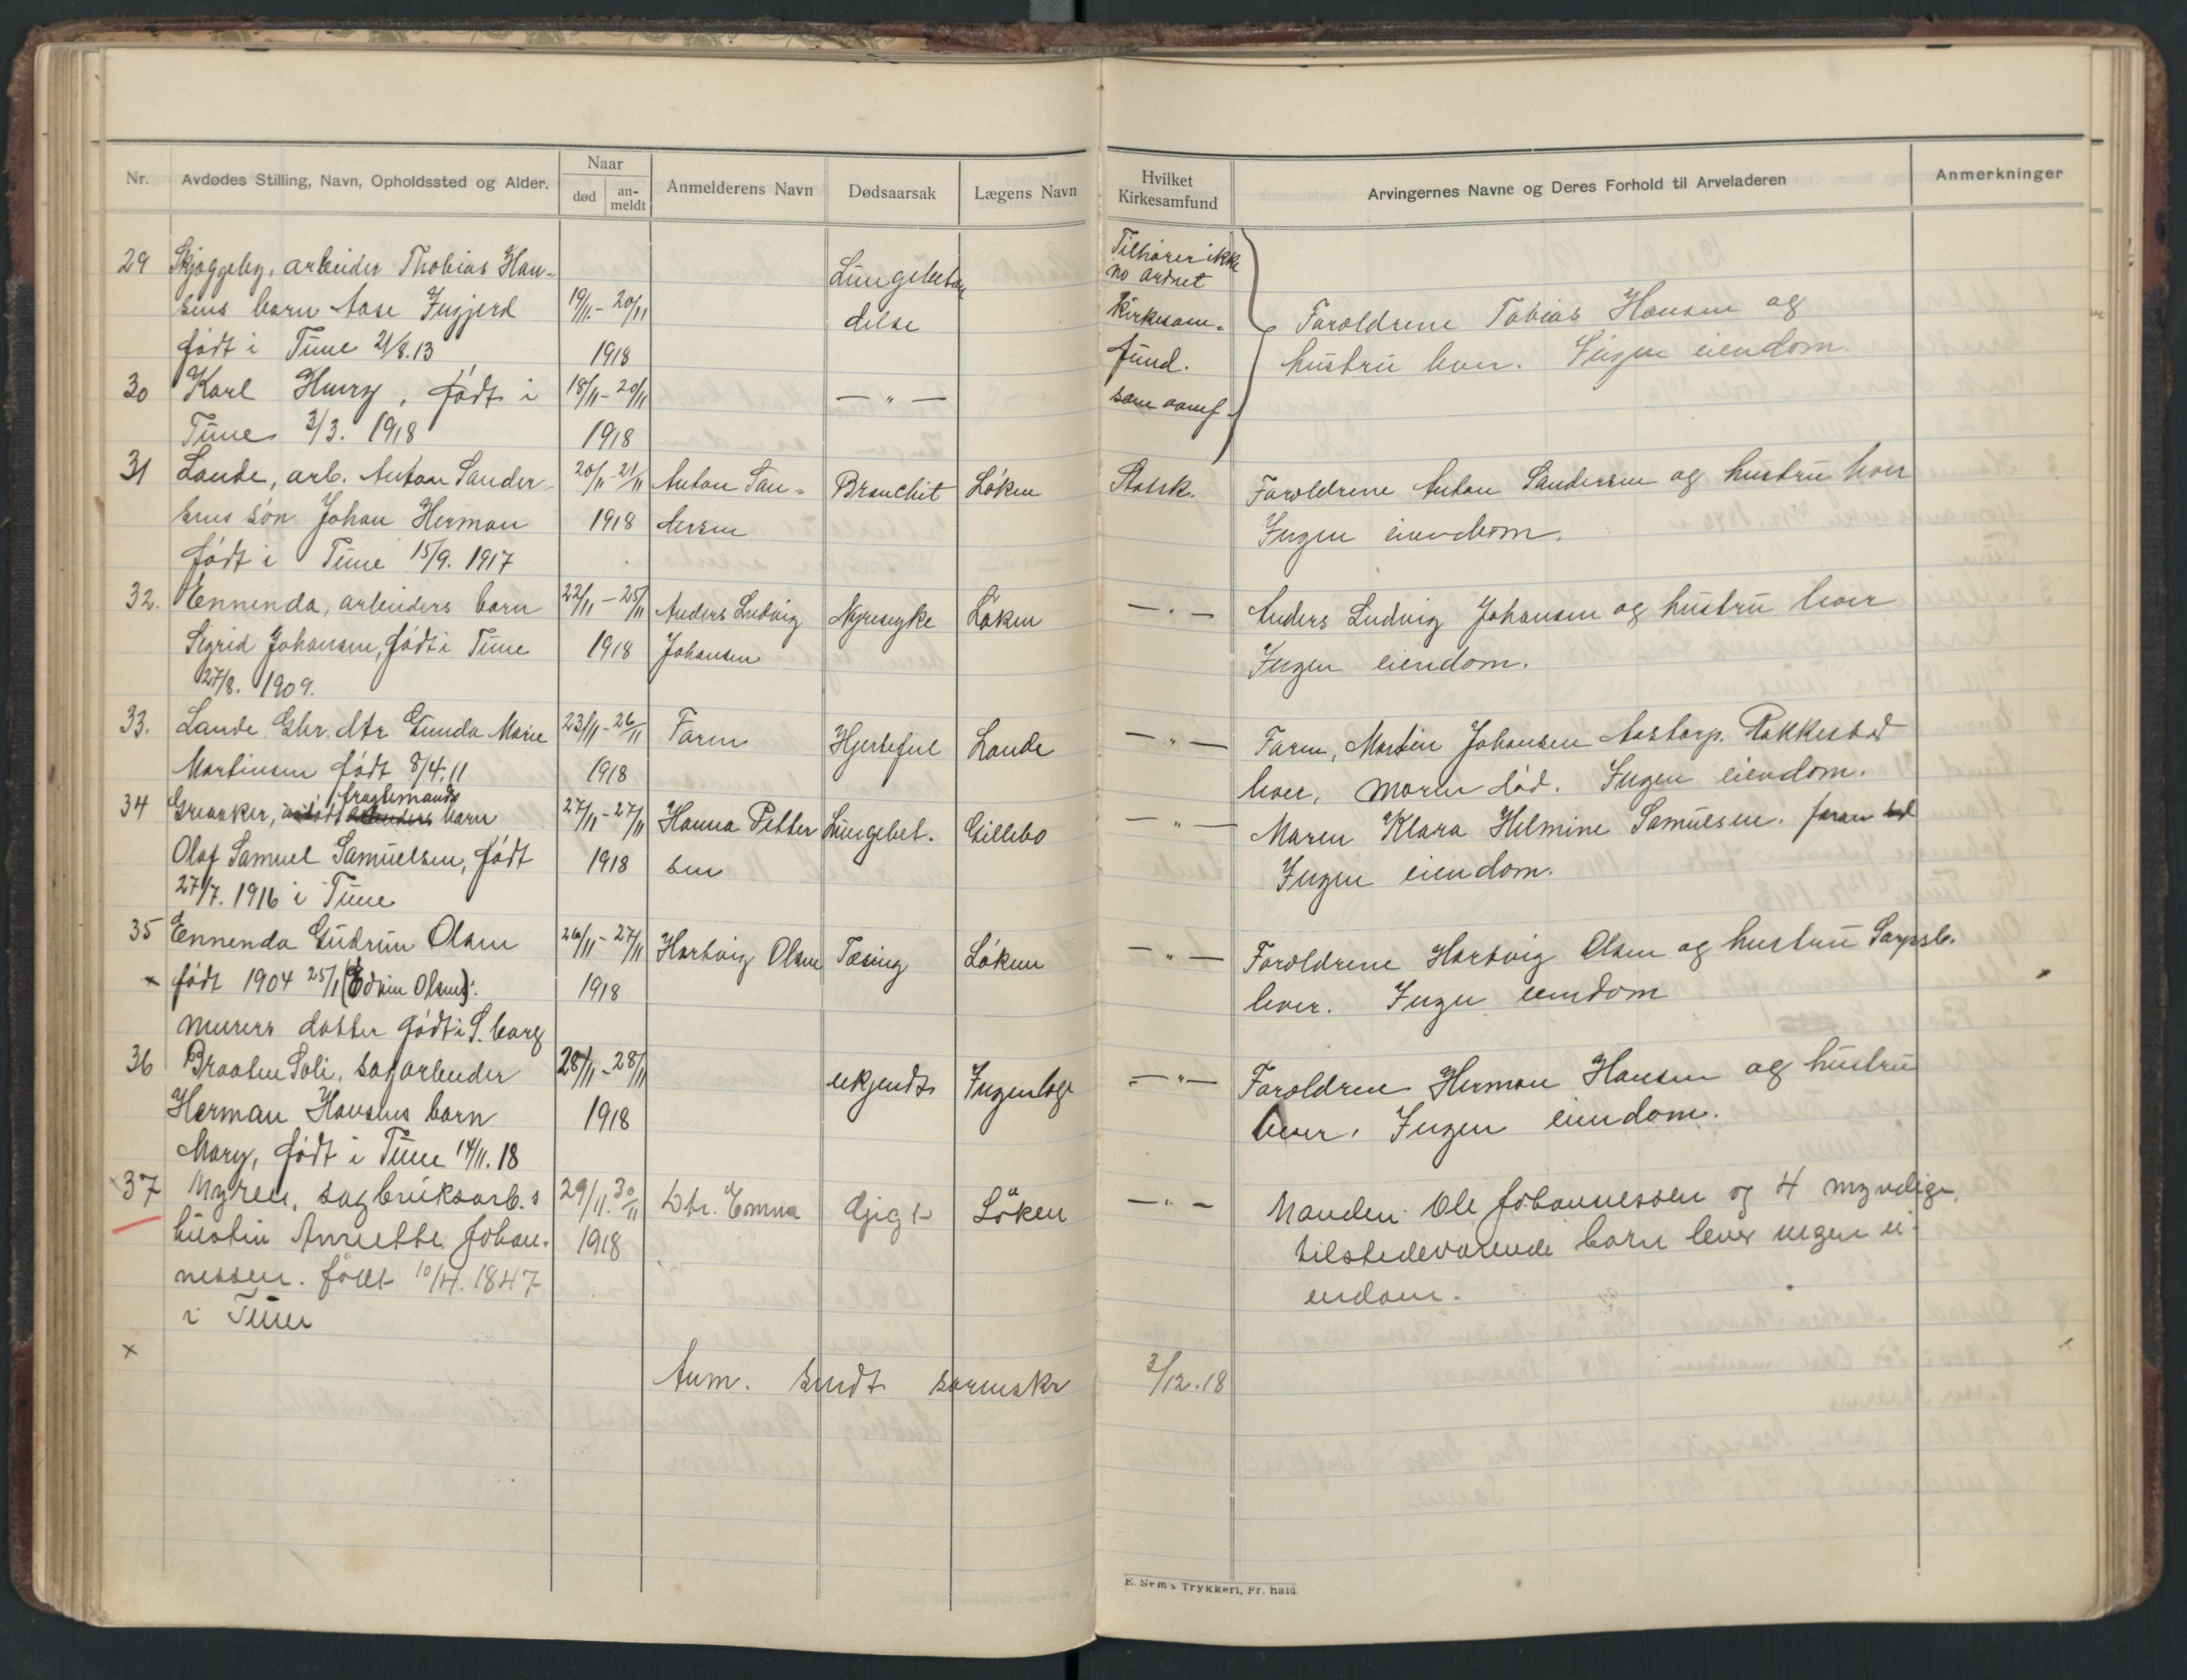 Nr.
Avdødes Stilling, Navn, Opholdssted og Alder.
Naar
død
an-
meldt
Anmelderens Navn
Dødsaarsak
Lægens Navn
Hvilket
Kirkesamfund
Arvingernes Navne og Deres Forhold til Arveladeren
Anmerkninger
29 Skjøggeby, arbeider Thobias Han-
sens barn Aase Ingjerd 19/11 - 20/11
født i Tune 21/8.13 1918
Lungebeten
delse
Tilhører ikke
no ordnet
Kirkesam-
fund.
Foroldrene Tobias Hansen og
hustru lever. Ingen eiendom.
30 Karl Harry, født i 18/11 - 20/11 — " —
Tune 3/3. 1918 1918
31 Lande, arb. Anton Sander 20/11 - 21/11 Anton San- Bronchit Løken Statsk. Foroldrene Anton Sandersen og hustru lever
sens søn Johan Herman 1918 dersen Ingen eiendom.
født i Tune 15/9. 1917
32. Ennenda, arbeiders barn 22/11 - 25/11 Anders Ludvig Nyresyke Løken — " — Anders Ludvig Johansen og hustru lever
Sigrid Johansen, født i Tune 1918 Johansen Ingen eiendom.
27/8. 1909.
33. Lande Gbr. dtr Gunda Marie 23/11 - 26/11 Faren Hjertefeil Lande — " — Faren, Martin Johansen Aastorp. Rakkestad
Martinsen født 8/4.11 1918 lever, moren død. Ingen eiendom.
fragtemands
34 Greaaker, arbeiders barn 27/11 - 27/11 Hanna Petter Lungebet. Gillebo — " — Moren Klara Helmine Samuelsen. faren død
Olaf Samuel Samuelsen, født 1918 sen Ingen eiendom.
27/7. 1916 i Tune
35 Ennenda Gudrun Olsen 26/11 - 27/11 Hartvig Olsen Tæring Løken — " — Foroldrene Hartvig Olsen og hustru Sarpsb.
x født 1904 25/1 (Edvin Olsens). 1918 lever. Ingen eiendom
murers datter født i S.borg
36 Braaten Soli, sagarbeider 28/11 - 28/11 ukjendt Ingen læge — " — Foroldrene Herman Hansen og hustru
Herman Hansens barn 1918 lever. Ingen eiendom.
Mary, født i Tune 14/11. 18
37 Myren, sagbruksarb.s 29/11. 30/11 Dtr. Emma Gjigt Løken — " — Manden Ole Johannessen og 4 myndige,
hustru Annette Johan- 1918 tilstedeværende barn lever ingen ei-
nessen. født 10/4. 1847 endom.
i Tune
x
Anm. sendt sorenskr 3/12.18
E. Sem's Trykkeri, Fr. hald.